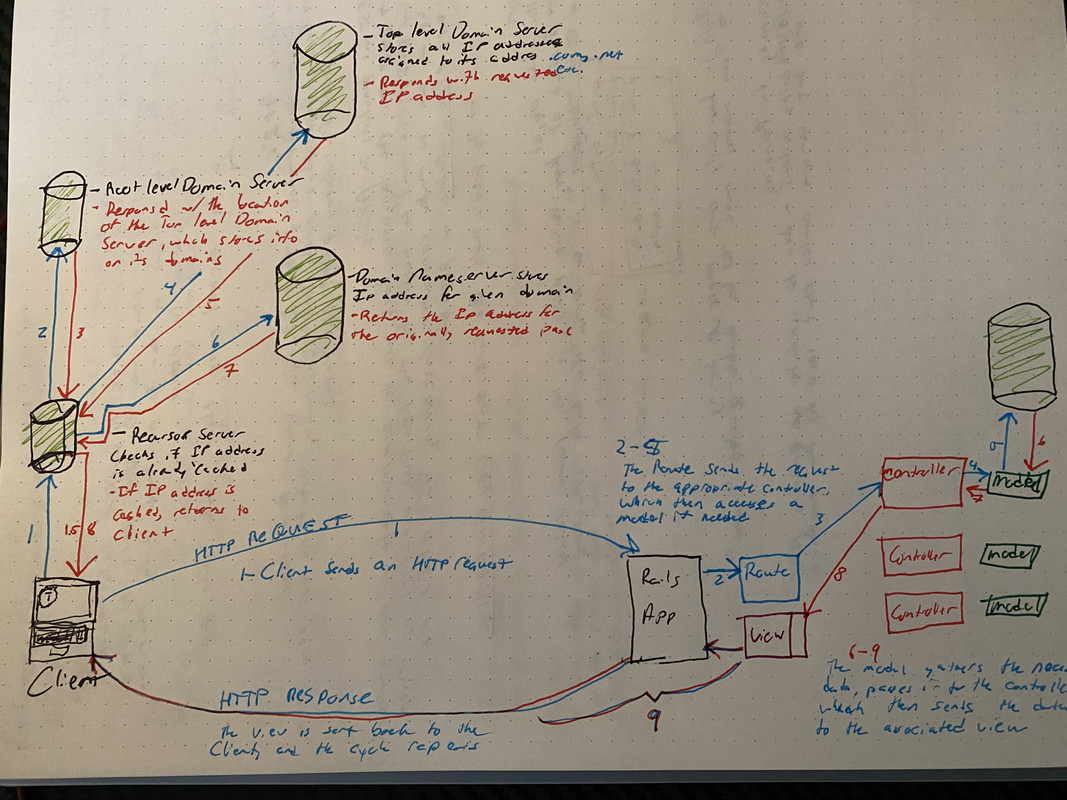 - Top level Domain Server
stores all IP addresses
assigned to its address .com, .net
etc.
- Responds with requested
IP address
- Root level Domain Server
- Respond w/ the location
of the Top level Domain
Server, which stores info
on its domains
4
5
- Domain Nameserver stores
Ip address for given domain
- Returns the Ip address for
the originally requested page
2
3
6
7
- Recursor Server
Checks if IP address
is already cached
- If IP address is
cashed, returns to
client
1
1.5
8
Client
HTTP REQUEST
1
1- Client Sends an HTTP request
2-5
The Route Sends the request
to the appropriate controller,
which then accesses a
model if needed
Rails
App
2
Route
3
Controller
4
7
model
5
6
8
View
Controller
model
Controller
model
6-9
The model gathers the
data, passes it to the controller
which then sends the data
to the associated view
9
HTTP RESPONSE
The view is sent back to the
Client, and the cycle repeats